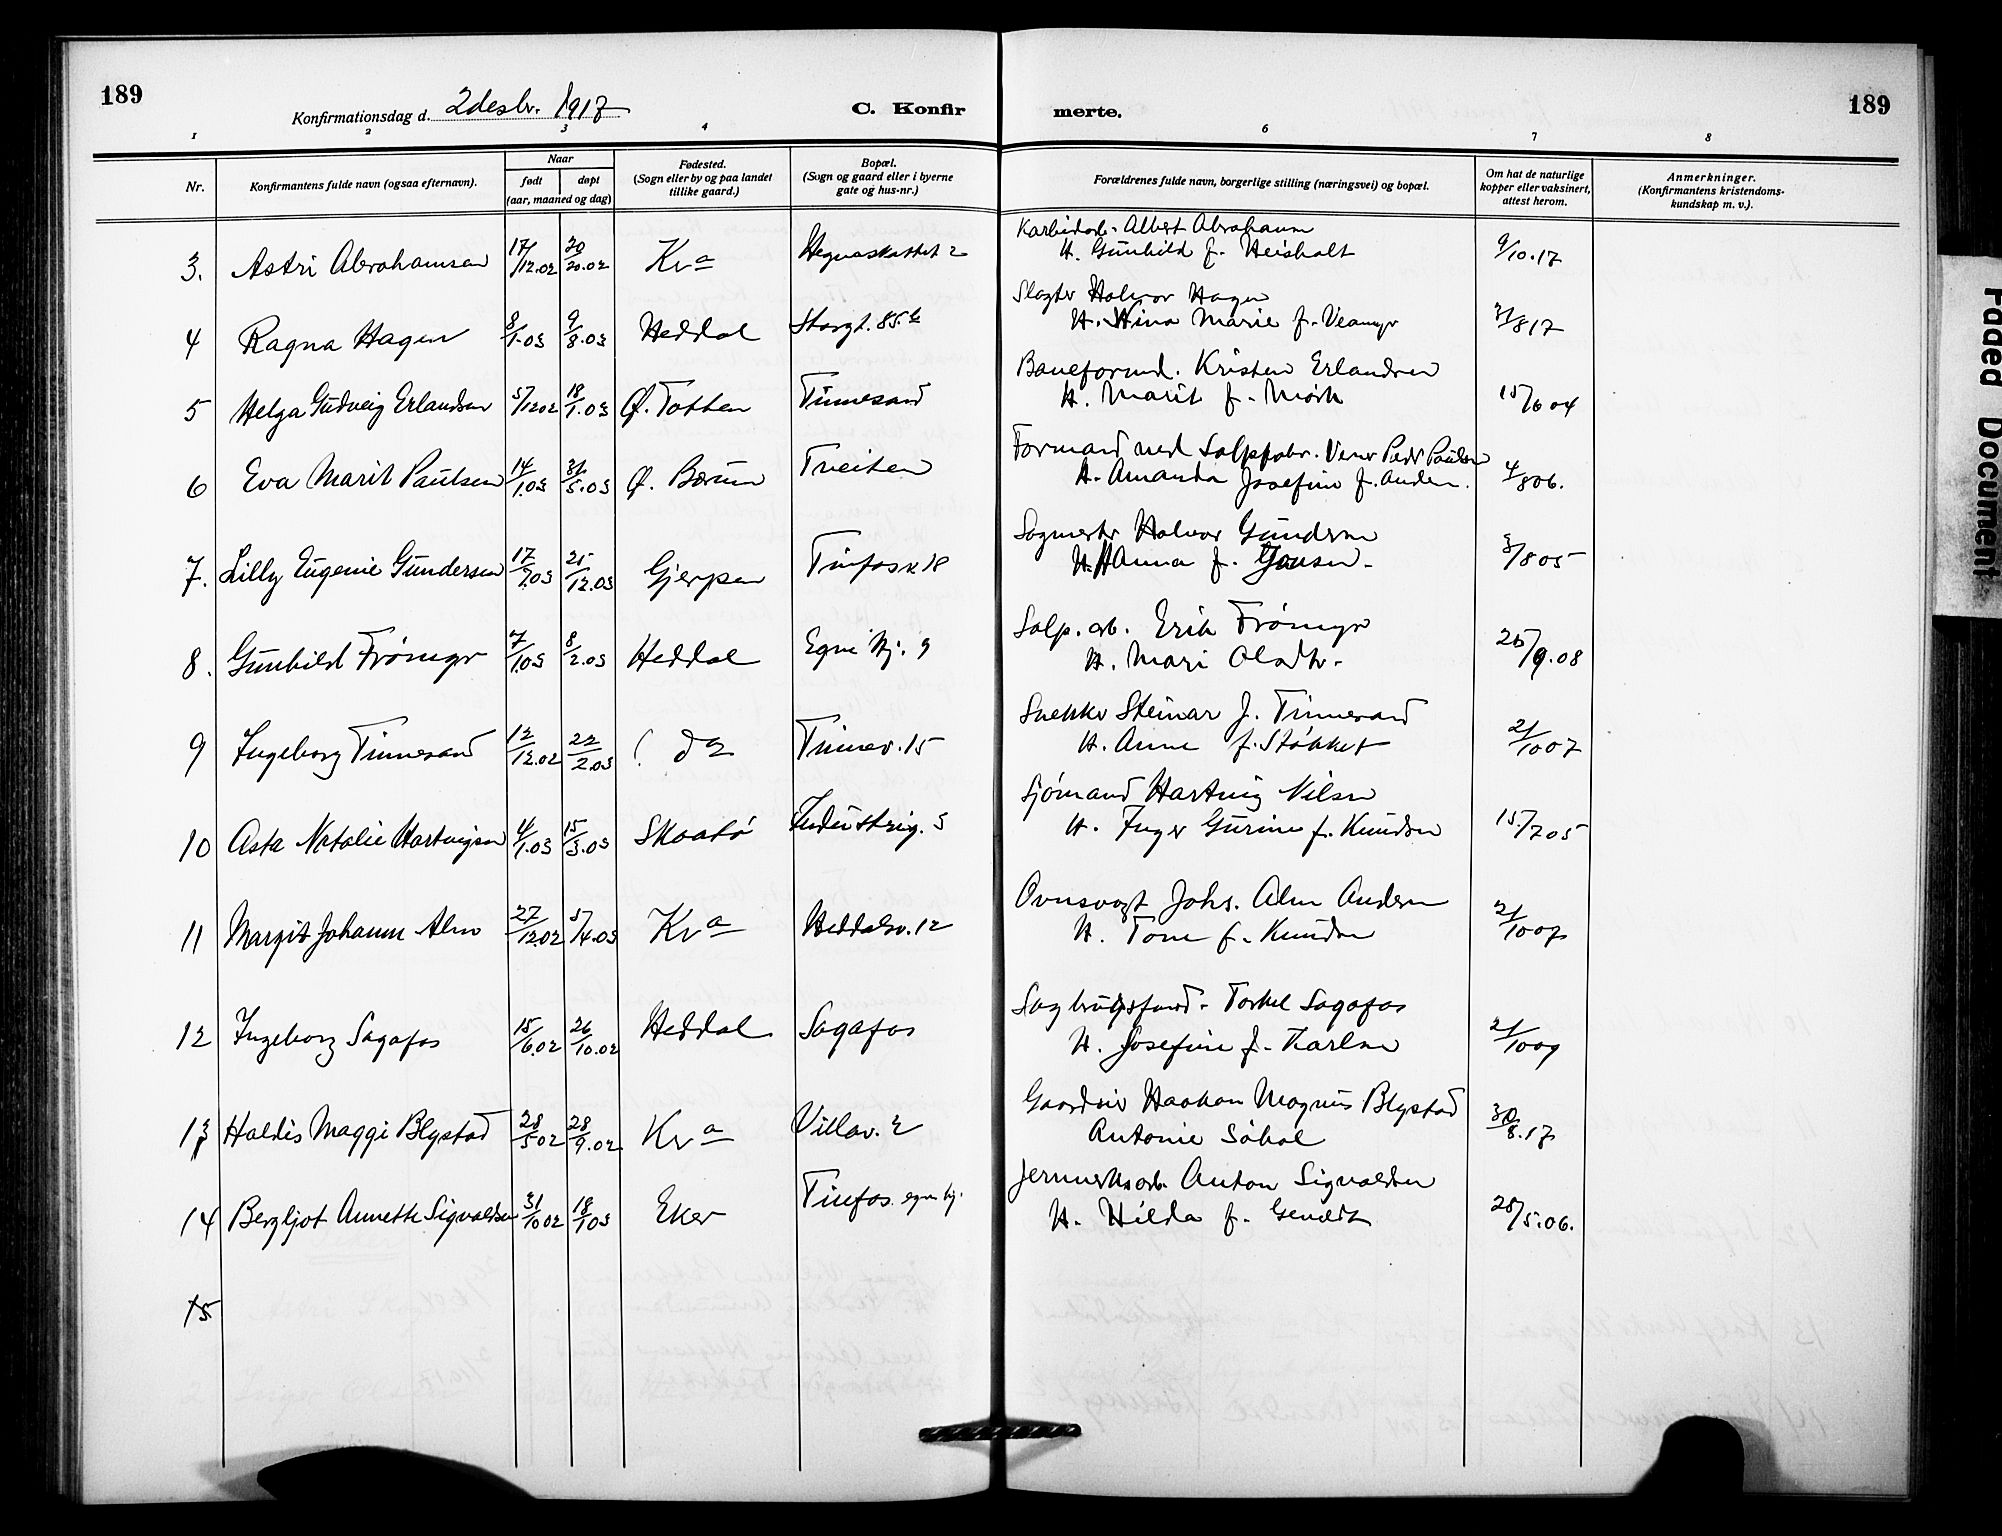 189
Konfirmationsdag d. 2 desbr. 1917
C. Konfir
merte.
189
1 2 3 4 6 7 8
Nr.
Konfirmantens fulde navn (ogsaa efternavn).
Naar
født
døpt
(aar, maaned og dag)
Fødested.
(Sogn eller by og paa landet
tillike gaard.)
Bopæl.
(Sogn og gaard eller i byerne
gate og hus-nr.)
Forældrenes fulde navn, borgerlige stilling (næringsvei) og bopæl.
Om hat de naturlige
kopper eller vaksinert,
attest herom.
Anmerkninger.
(Konfirmantens kristendoms-
kundskap m. v.).
3. Astri Abrahamsen 17/12.02 20.02 Kra 2
Karbidarb. Albert Abrahamsen
H. Gunhild f. Heisholt 9/10.17
4 Ragna Hagen 8/1.03 9/8.03 Heddal Storgt. 85.b
Slagter Halvor Hagen
H. Stina Marie f. Veamyr 31/8 17
5 Helga Gudveig Erlandsen 5/12 02 18/1.03 Ø. Totten Tinnesand
Baneformd. Kristen Erlandsen
H. Marit f. Mørk 15/6 04
6 Eva Marit Paulsen 14/1.03 31/5.03 Ø. Bærum Tveiten
Formand ved Salpfabr. Peder Paulsen
H. Amanda Josefine f. Anders. 4/8 06.
7. Lilly Eugenie Gundersen 17/7.03 25/12.03 Gjerpen Tinfos 18
Sagmester Halvor Gundersen
H. Anna f. Jonsen. 3/8 05
8. Gunhild Frömyr 7/1.03 8/2.03 Heddal Egne hj. 9
Salp. arb. Erik Frömyr
H. Mari Olsdtr. 26/9.08
9 Ingeborg Tinnesand 12/12.02 22/2.03 do Tinnev. 15
Snekker Steinar J. Tinnesand
H. Anne f. Støkket 21/10 07
10 Asta Natalie Hartvigsen 4/1.03 15/3.03 Skaatö Industrig. 5
Sjömand Hartvig Nilsen
H. Inger Gurine f. Knudsen 15/7 05
11 Margit Johanne Alm 27/12 02 5/4.03 Kra Heddalsv. 12
Ovnsvogt Johs. Alm Andersen
H. Tone f. Knudsen 21/10 07
12 Ingeborg Sagafos 15/6.02 26/10.02 Heddal Sagafos
Sagbrugsformd. Torkel Sagafos
H. Josefine f. Karlsen 21/10 09
13 Haldis Maggi Blystad 28/5 02 28/9.02 Kra Villav. 2
Gaardeier Haakon Magnus Blystad
Antonie Söbol 30/8.17
14 Bergljot Annette Sigvaldsen 31/10 02 18/1 03 Eker Tinfos egne hj.
Jernverksarb. Anton Sigvaldsen
H. Hilda f. 25/5.06.
15
Faded Document